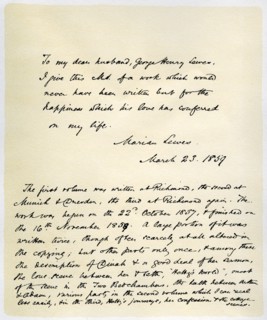 To my dear husband, George Henry Lewes,
I give this MS. of a work which would
never have been written but for the
happiness which his love has conferred
on my life.
Marian Lewes
March 23. 1859
The first volume was written at Richmond, the second at
Munich & Dresden, the third at Richmond again. The
work was begun on the 22nd October 1857, & finished on
the 16th November 1858. A large portion of it was
written twice, though often scarcely at all altered in
the copying; but other parts only once, & among these
the description of Dinah & a good deal of her sermon,
the love scene between her & Seth, "Hetty's World", most
of the scene in the Two Bedchambers, the talk between Arthur
& Adam, various parts in the second volume which I can recall
less easily, & in the third, Hetty's journeys, her confession & the cottage
scenes.